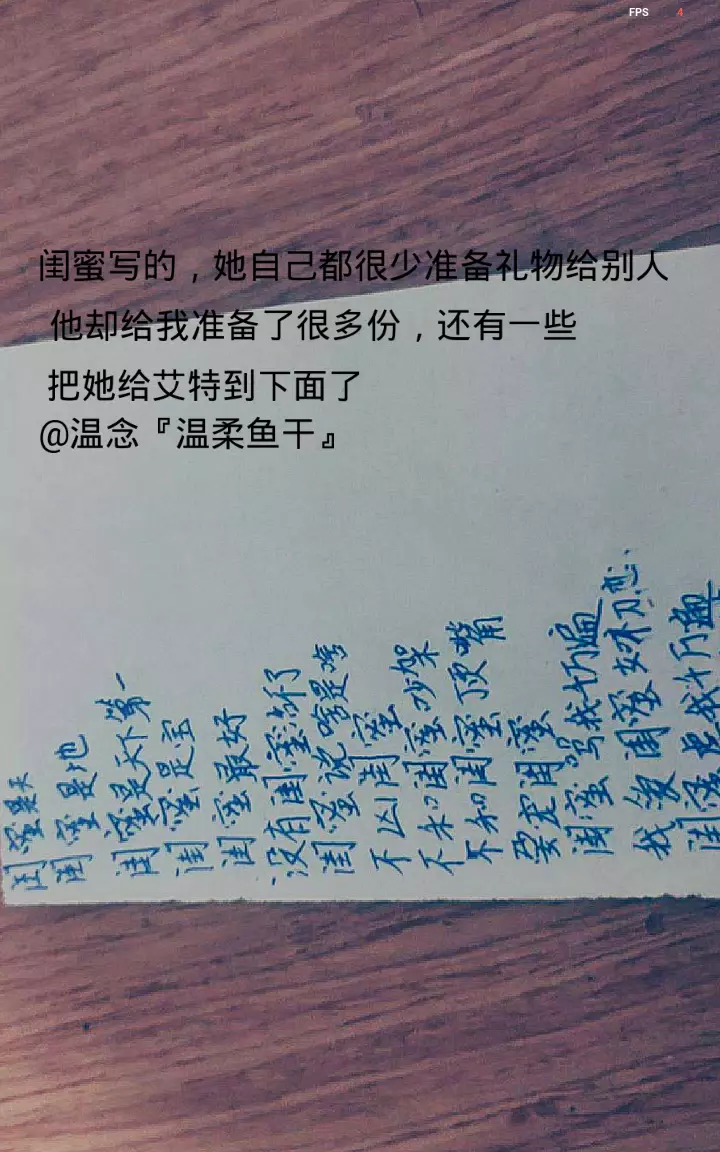 FPS 4
闺蜜写的，她自己都很少准备礼物给别人
他却给我准备了很多份，还有一些
把她给艾特到下面了
@温念『温柔鱼干』
闺蜜是天
闺蜜是地
闺蜜是天下第一
闺蜜是宝
闺蜜最好
没有闺蜜不行
闺蜜说啥是啥
不凶闺蜜
不和闺蜜吵架
不和闺蜜顶嘴
要宠闺蜜
闺蜜骂我千万遍
我做闺蜜如初恋
闺蜜虐我千万遍